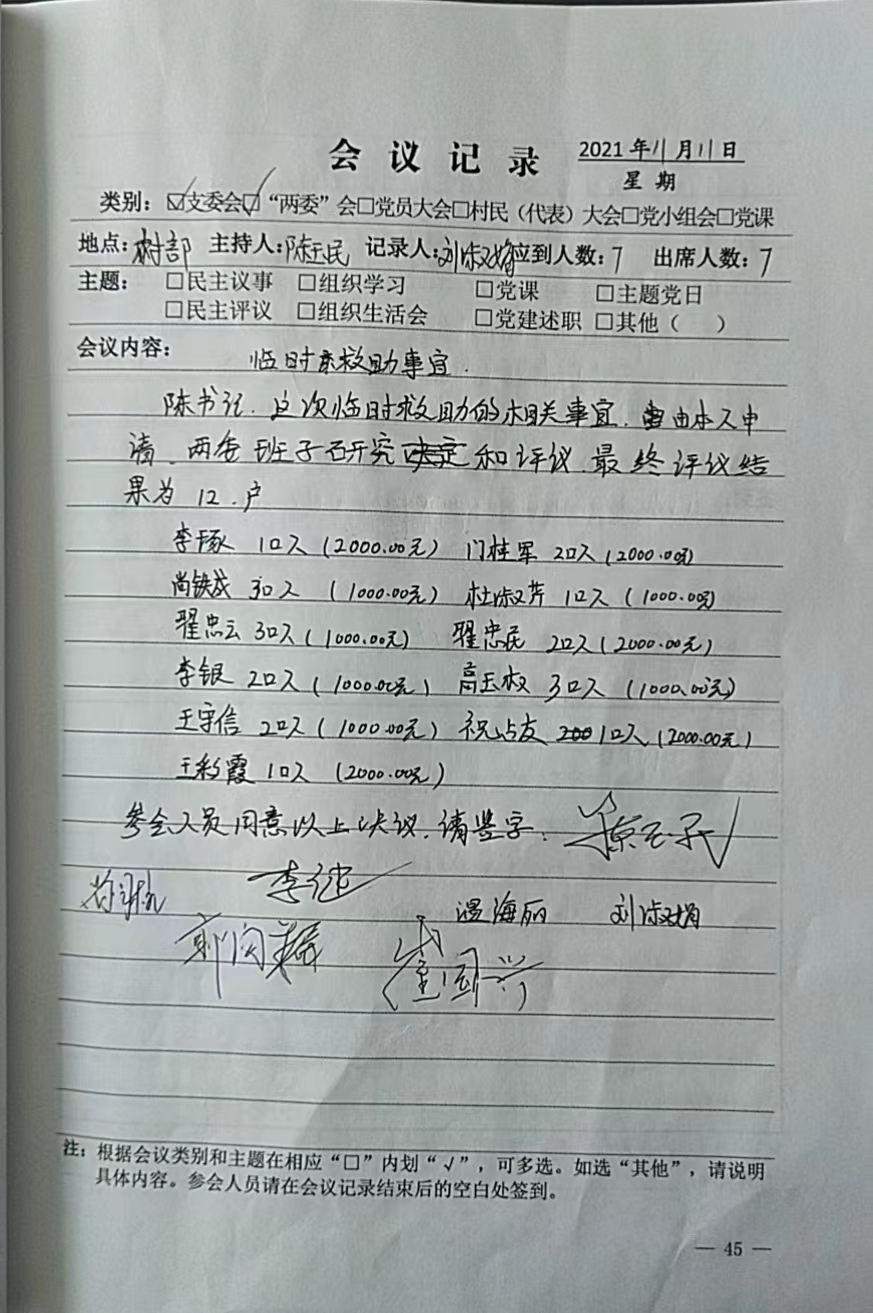 会议记录 2021年11月11日
星期
类别：☑支委会☑“两委”会□党员大会□村民（代表）大会□党小组会□党课
地点：村部 主持人：陈玉民 记录人：刘淑娟 应到人数：7 出席人数：7
主题：□民主议事 □组织学习 □党课 □主题党日
□民主评议 □组织生活会 □党建述职 □其他（ ）
会议内容：
临时救助事宜.
陈书记.这次临时救助的相关事宜.由本人申
请.两委班子研究和评议.最终评议结
果为12.户
李琢 1口人(2000.00元) 门桂军 2口人(2000.00元)
尚铁成 3口人 (1000.00元) 杜淑芹 1口人(1000.00元)
翟忠云 3口人(1000.00元) 翟忠民 2口人(2000.00元)
李银 2口人(1000.00元) 高玉权 3口人 (1000.00元)
王宇信 2口人(1000.00元) 祝占友 1口人(2000.00元)
王彩霞 1口人 (2000.00元)
参会人员同意以上决议.请签字：
李
温海丽 刘淑娟
郭 国兴
注：根据会议类别和主题在相应“□”内划“√”，可多选。如选“其他”，请说明
具体内容。参会人员请在会议记录结束后的空白处签到。
— 45 —